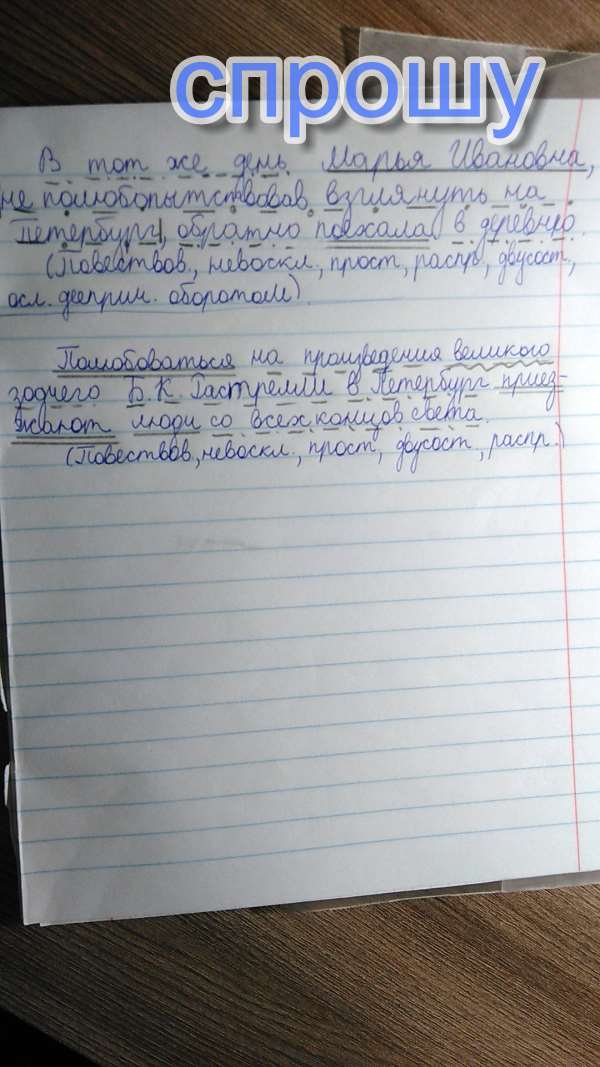 спрошу
В тот же день Марья Ивановна,
не полюбопытствовав взглянуть на
Петербург, обратно поехала в деревню.
(Повествов, невоскл, прост, распр, двусост,
осл. дееприч. оборотом).
Полюбоваться на произведения великого
зодчего Б. К. Растрелли в Петербург приез-
жают люди со всех концов света.
(Повествов, невоскл., прост, двусост, распр.)